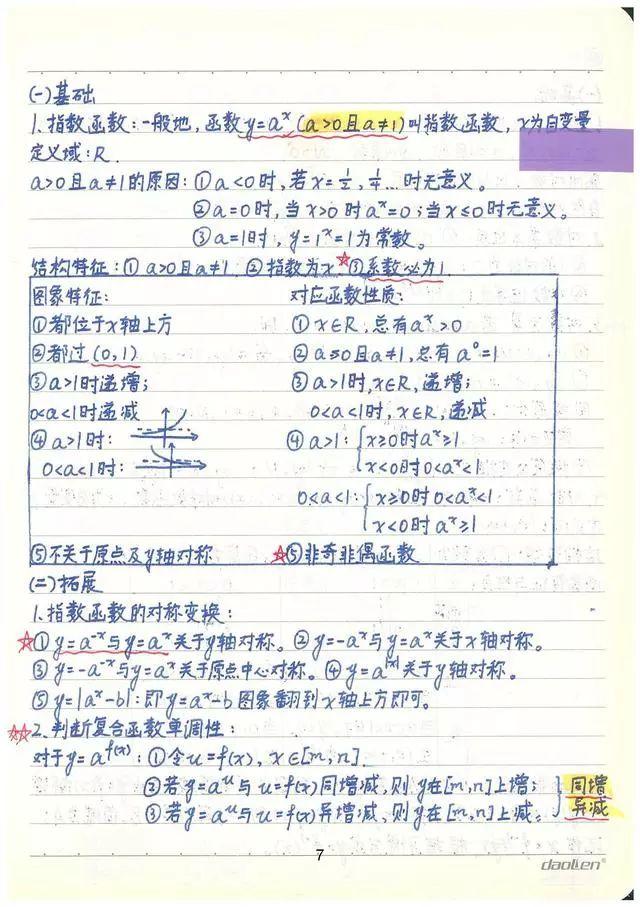 (一)基础
1. 指数函数:一般地,函数y=aˣ(a>0且a≠1)叫指数函数,x为自变量
定义域:R.
a>0且a≠1的原因:①a<0时,若x=½,¼…时无意义。
②a=0时,当x>0时aˣ=0;当x≤0时无意义。
③a=1时,y=1ˣ=1为常数。
结构特征:①a>0且a≠1 ②指数为x ☆③系数必为1.
图象特征: 对应函数性质:
①都位于x轴上方 ①x∈R,总有aˣ>0
②都过(0,1) ②a≥0且a≠1,总有a⁰=1
③a>1时递增; ③a>1时,x∈R,递增;
0<a<1时递减 0<a<1时,x∈R,递减
④a>1时: ④a>1:{x≥0时aˣ≥1
0<a<1时: x<0时0<aˣ<1
0<a<1:{x≥0时0<aˣ<1
x<0时aˣ≥1
⑤不关于原点及y轴对称 ☆⑤非奇非偶函数
(二)拓展
1. 指数函数的对称变换:
☆①y=a⁻ˣ与y=aˣ关于y轴对称。②y=-aˣ与y=aˣ关于x轴对称。
③y=-a⁻ˣ与y=aˣ关于原点中心对称。④y=a^|x|关于y轴对称。
⑤y=|aˣ-b|:即y=aˣ-b图象翻到x轴上方即可。
☆☆2. 判断复合函数单调性:
对于y=a^f(x):①令u=f(x),x∈[m,n].
②若y=aᵘ与u=f(x)同增减,则y在[m,n]上增; 同增
③若y=aᵘ与u=f(x)异增减,则y在[m,n]上减。 异减
7
daolen